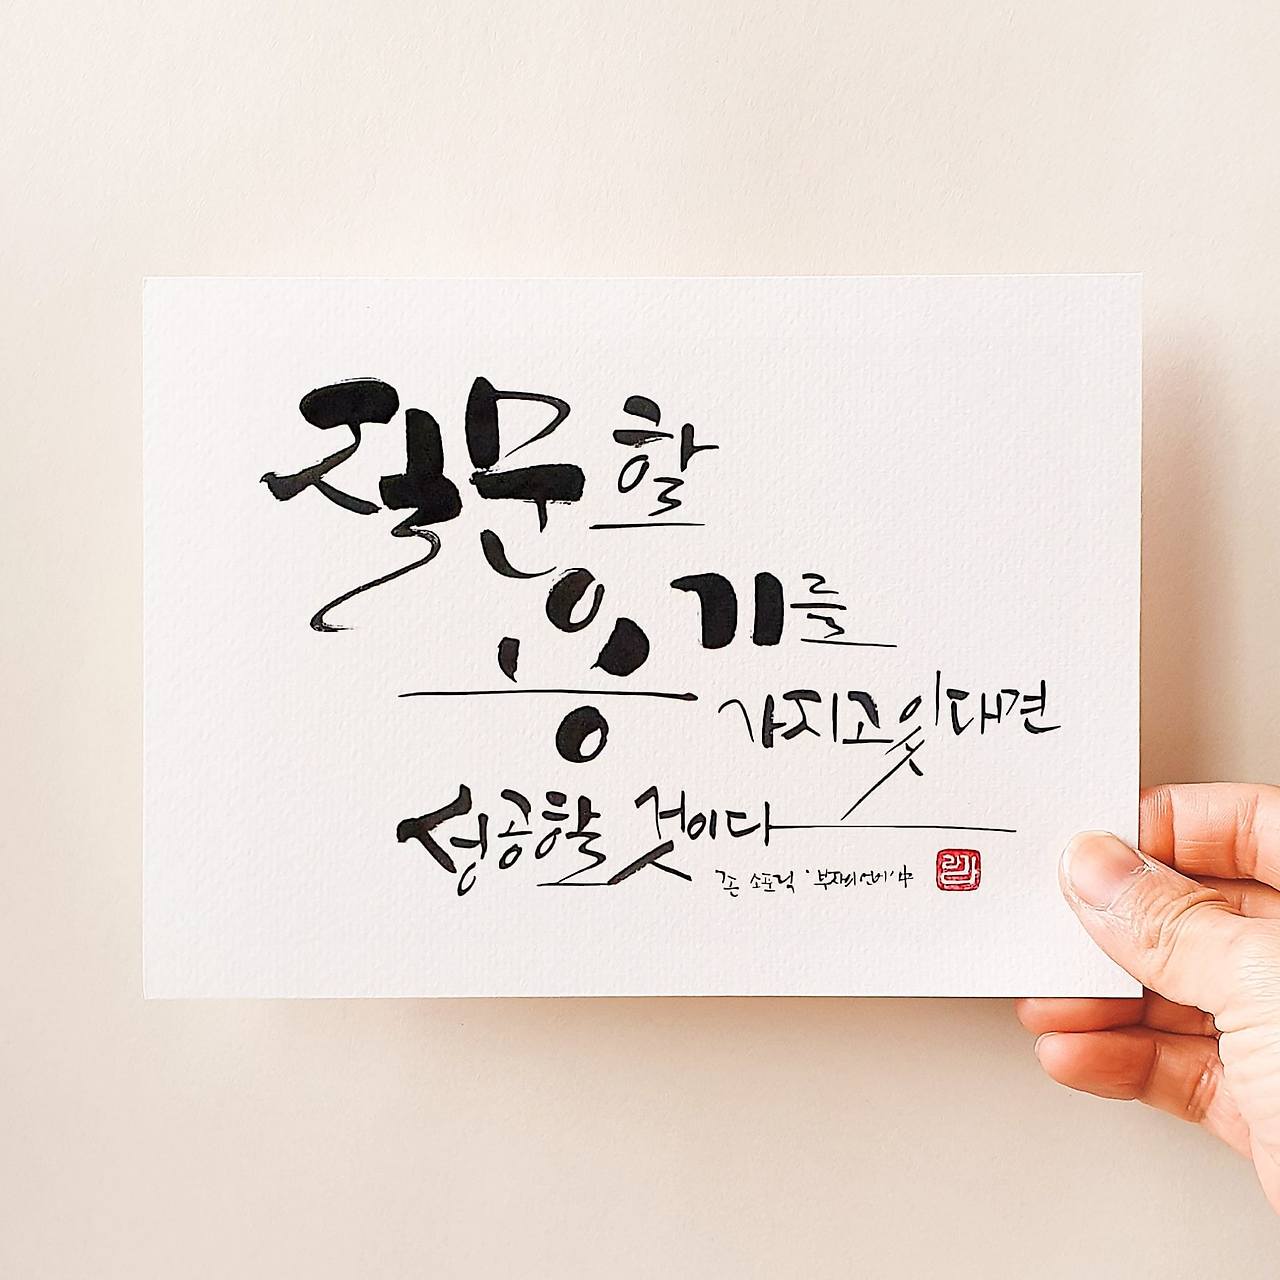 질문할
용기를
가지고 있다면
성공할 것이다
존 소포릭 '부자의 언어' 中